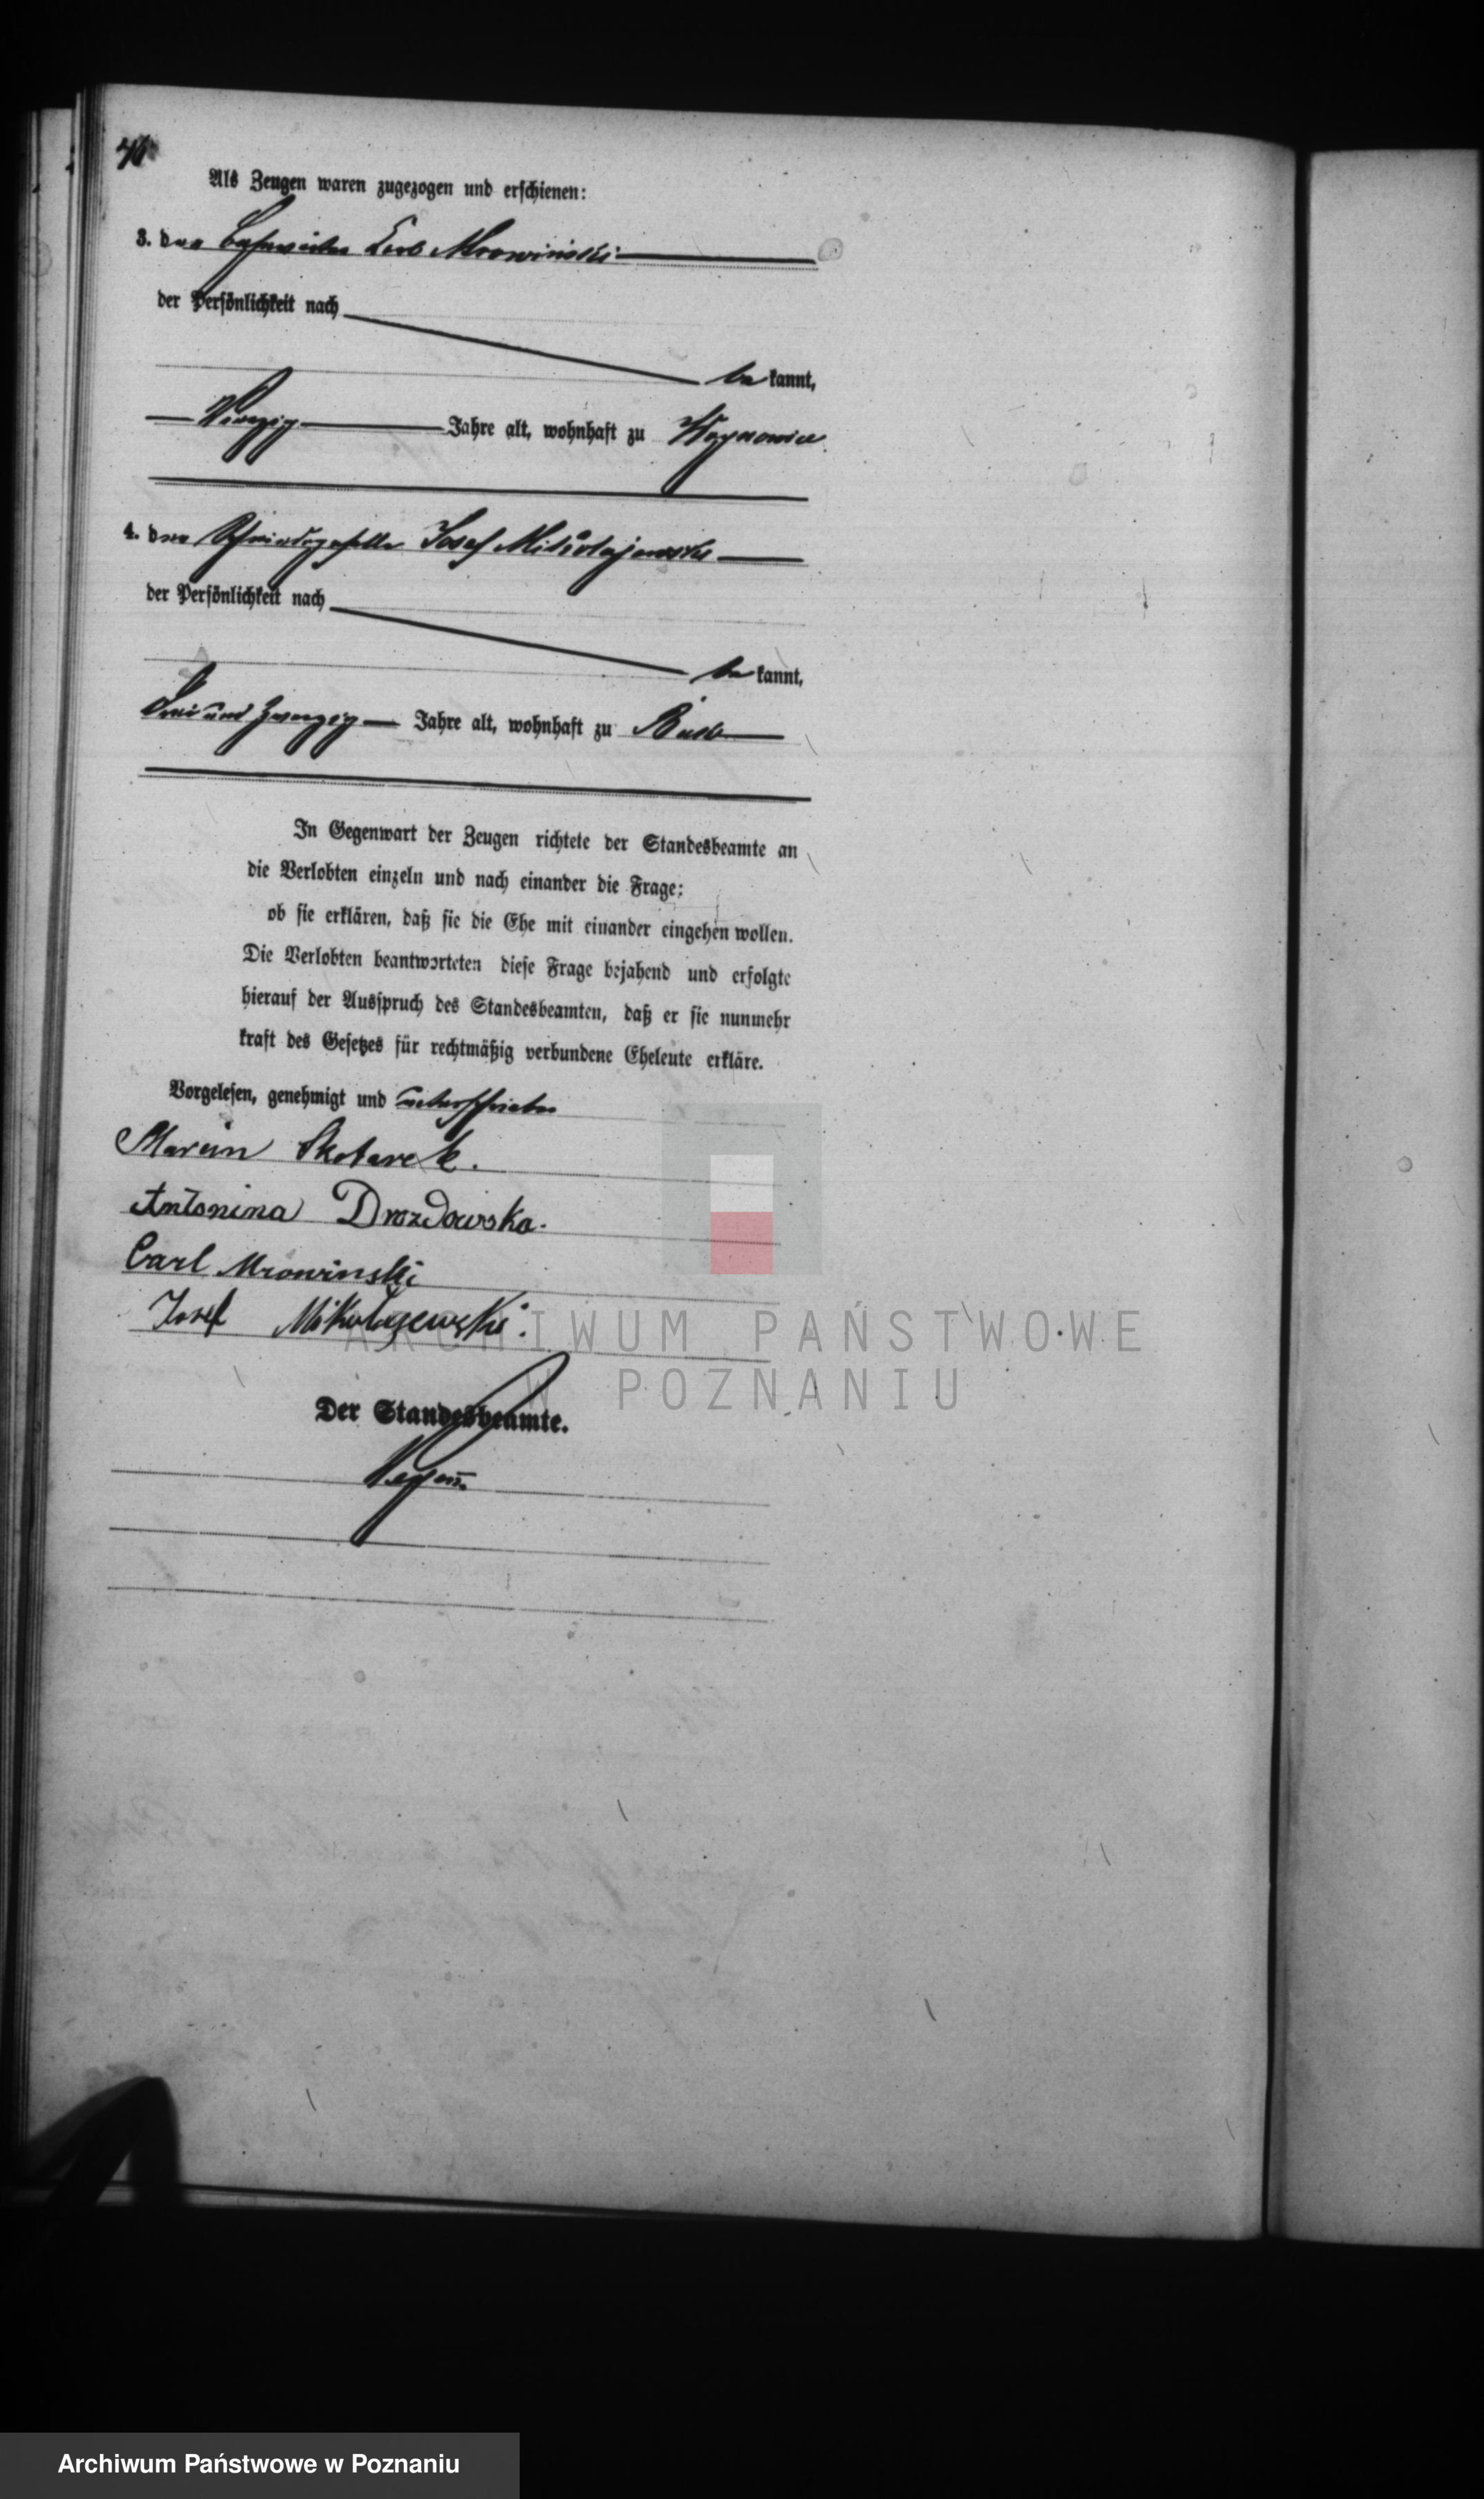 46
Als Zeugen waren zugezogen und erschienen:
3. der Gastwirth Carl Mrowinski
der Persönlichkeit nach
be kannt,
Vierzig Jahre alt, wohnhaft zu Woynowice
4. der Schmiedegeselle Josef Mikolajewski
der Persönlichkeit nach
be kannt,
Drei und zwanzig Jahre alt, wohnhaft zu Buk
In Gegenwart der Zeugen richtete der Standesbeamte an
die Verlobten einzeln und nach einander die Frage:
ob sie erklären, daß sie die Ehe mit einander eingehen wollen.
Die Verlobten beantworteten diese Frage bejahend und erfolgte
hierauf der Ausspruch des Standesbeamten, daß er sie nunmehr
kraft des Gesetzes für rechtmäßig verbundene Eheleute erkläre.
Vorgelesen, genehmigt und unterschrieben
Marcin Skotarek.
Antonina Drozdowska.
Carl Mrowinski
Josef Mikolajewski.
Der Standesbeamte.
ARCHIWUM PAŃSTWOWE
W POZNANIU
Archiwum Państwowe w Poznaniu